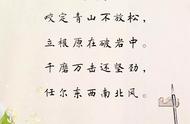 咬定青山不放松，
立根原在破岩中。
千磨万击还坚劲，
任尔东西南北风。